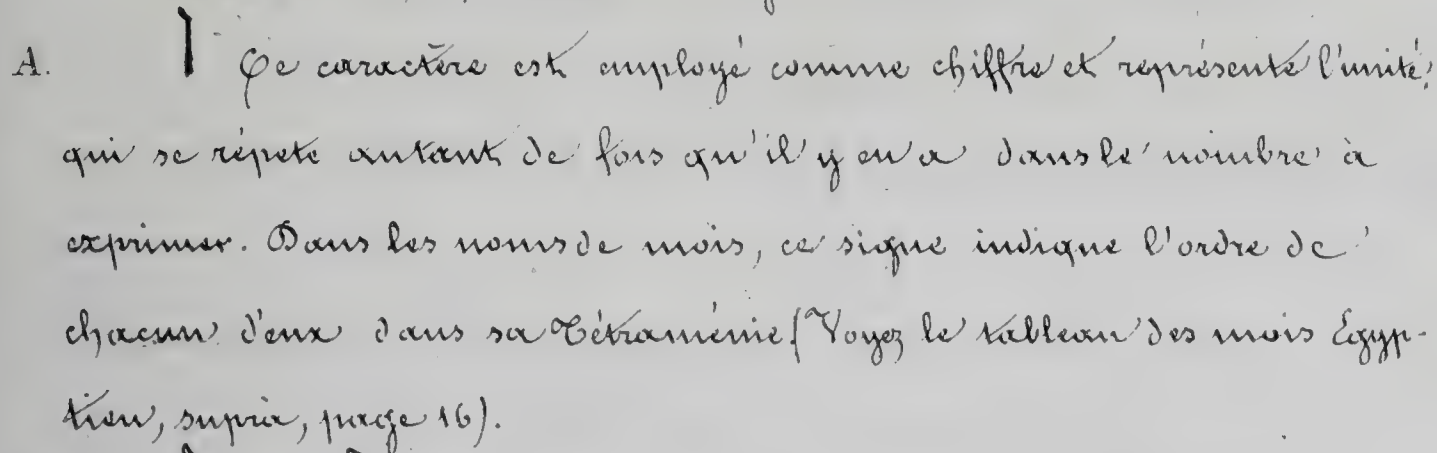 A. Ce caractère est employé comme chiffre et représente l'unité,
qui se répete autant de fois qu'il y en a dans le nombre à
exprimer. Dans les noms de mois, ce signe indique l'ordre de
chacun d'eux dans sa Tétraménie (Voyez le tableau des mois Égyp-
tien, suprà, page 16).